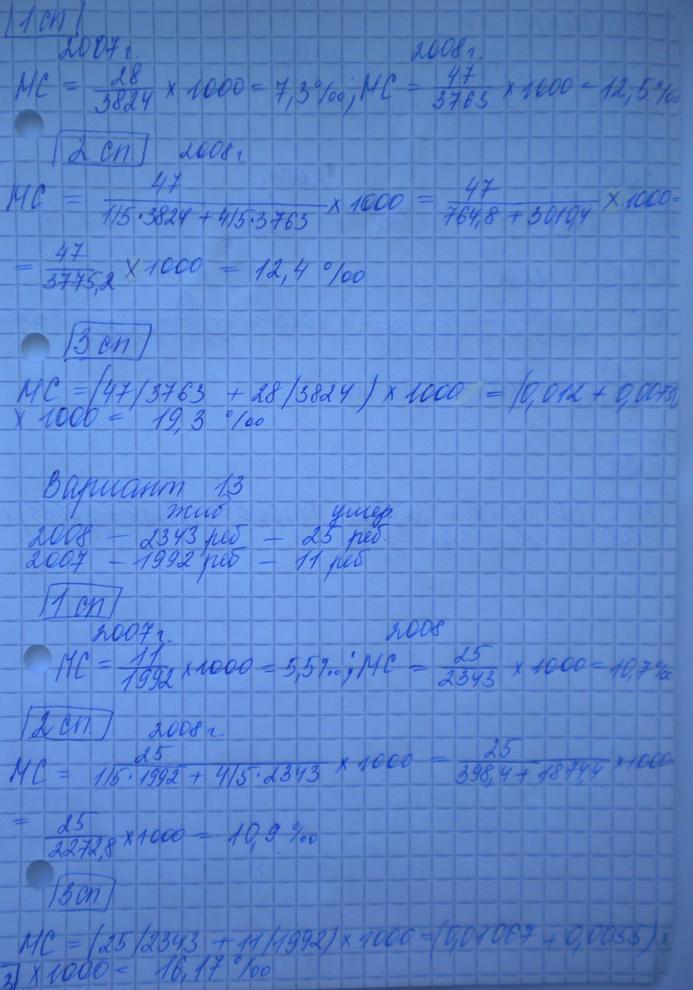 1 сп
2007 г. 2008 г.
МС = 28/3824 × 1000 = 7,3‰; МС = 47/3763 × 1000 = 12,5‰
2 сп. 2008 г
МС = 47/(1/5·3824 + 4/5·3763) × 1000 = 47/(764,8 + 3010,4) × 1000 =
= 47/3775,2 × 1000 = 12,4 ‰
3 сп
МС = (47/3763 + 28/3824) × 1000 = (0,012 + 0,0073)
× 1000 = 19,3 ‰
Вариант 13
жив умер.
2008 – 2343 реб – 25 реб.
2007 – 1992 реб – 11 реб
1 сп
2007 г. 2008
МС = 11/1992 × 1000 = 5,5‰; МС = 25/2343 × 1000 = 10,7‰
2 сп. 2008 г.
МС = 25/(1/5·1992 + 4/5·2343) × 1000 = 25/(398,4 + 1874,4) × 1000
= 25/2272,8 × 1000 = 10,9 ‰
3 сп
МС = (25/2343 + 11/1992) × 1000 = (0,01067 + 0,0055) ×
× 1000 = 16,17 ‰